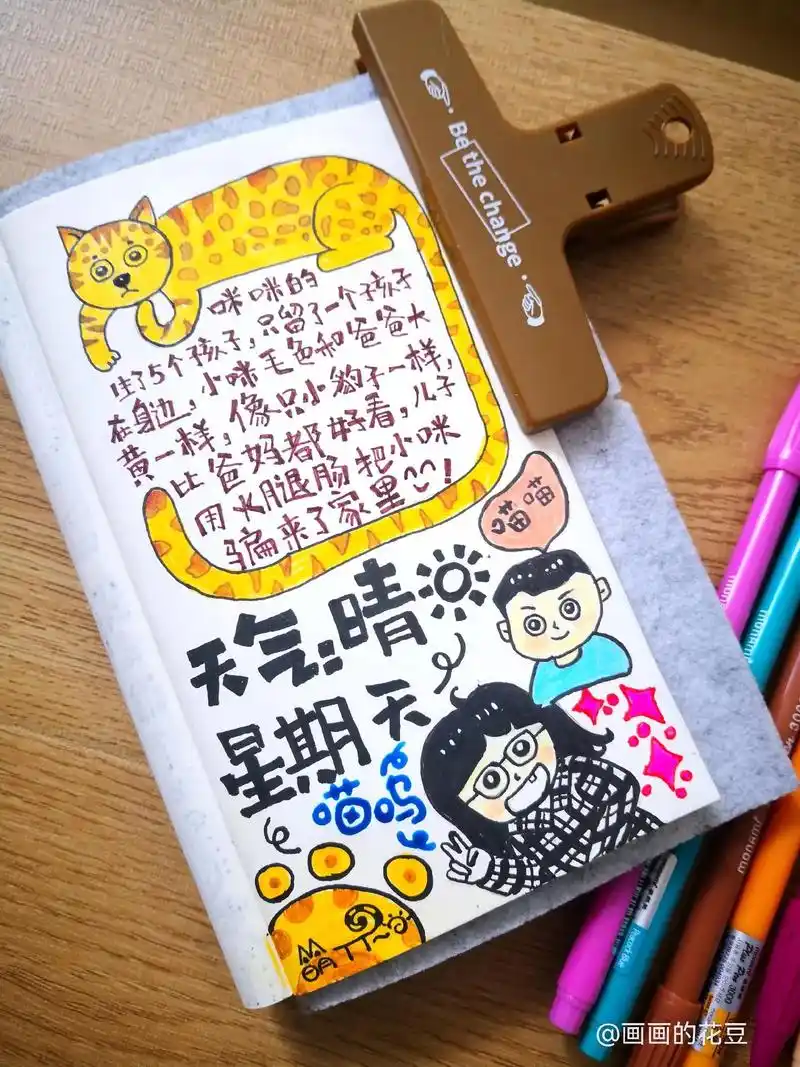 Be the change
咪咪的
生了5个孩子,只留了一个孩子
在身边,小咪毛色和爸爸大
黄一样,像只小豹子一样,
比爸妈都好看,儿子
用火腿肠把小咪
骗来了家里!
喵喵
天气:晴
星期天
喵呜
monami
monami
monami
monami
Plus Pen 3000
@画画的花豆